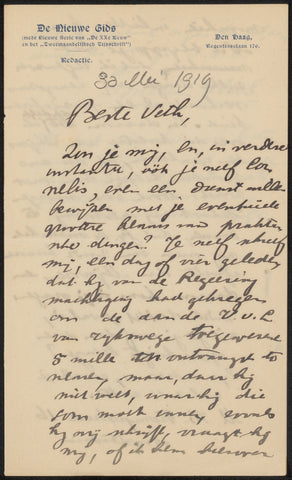 De Nieuwe Gids
(mede Nieuwe Serie van „De XXe Eeuw"
en het „Tweemaandelijksch Tijdschrift")
Redactie.
Den Haag,
Regentesselaan 176.
30 Mei 1919
Beste Veth,
Zou je mij, en, in verdere
instantie, óók je neef Cor
nelis, even een dienst willen
bewijzen met je eventueele
grootere kennis van praktis
che dingen? Je neef schreef
mij, een dag of vier geleden
dat hij van de Regeering
machtiging had gekregen
om de aan de V.v.L
van rijkswege toegewezen
5 mille ten ontvangst te
nemen maar, daar hij
niet weet, waar hij die
som moet innen, zooals
hij mij schrijft, vraagt hij
mij, of ik hem hierover